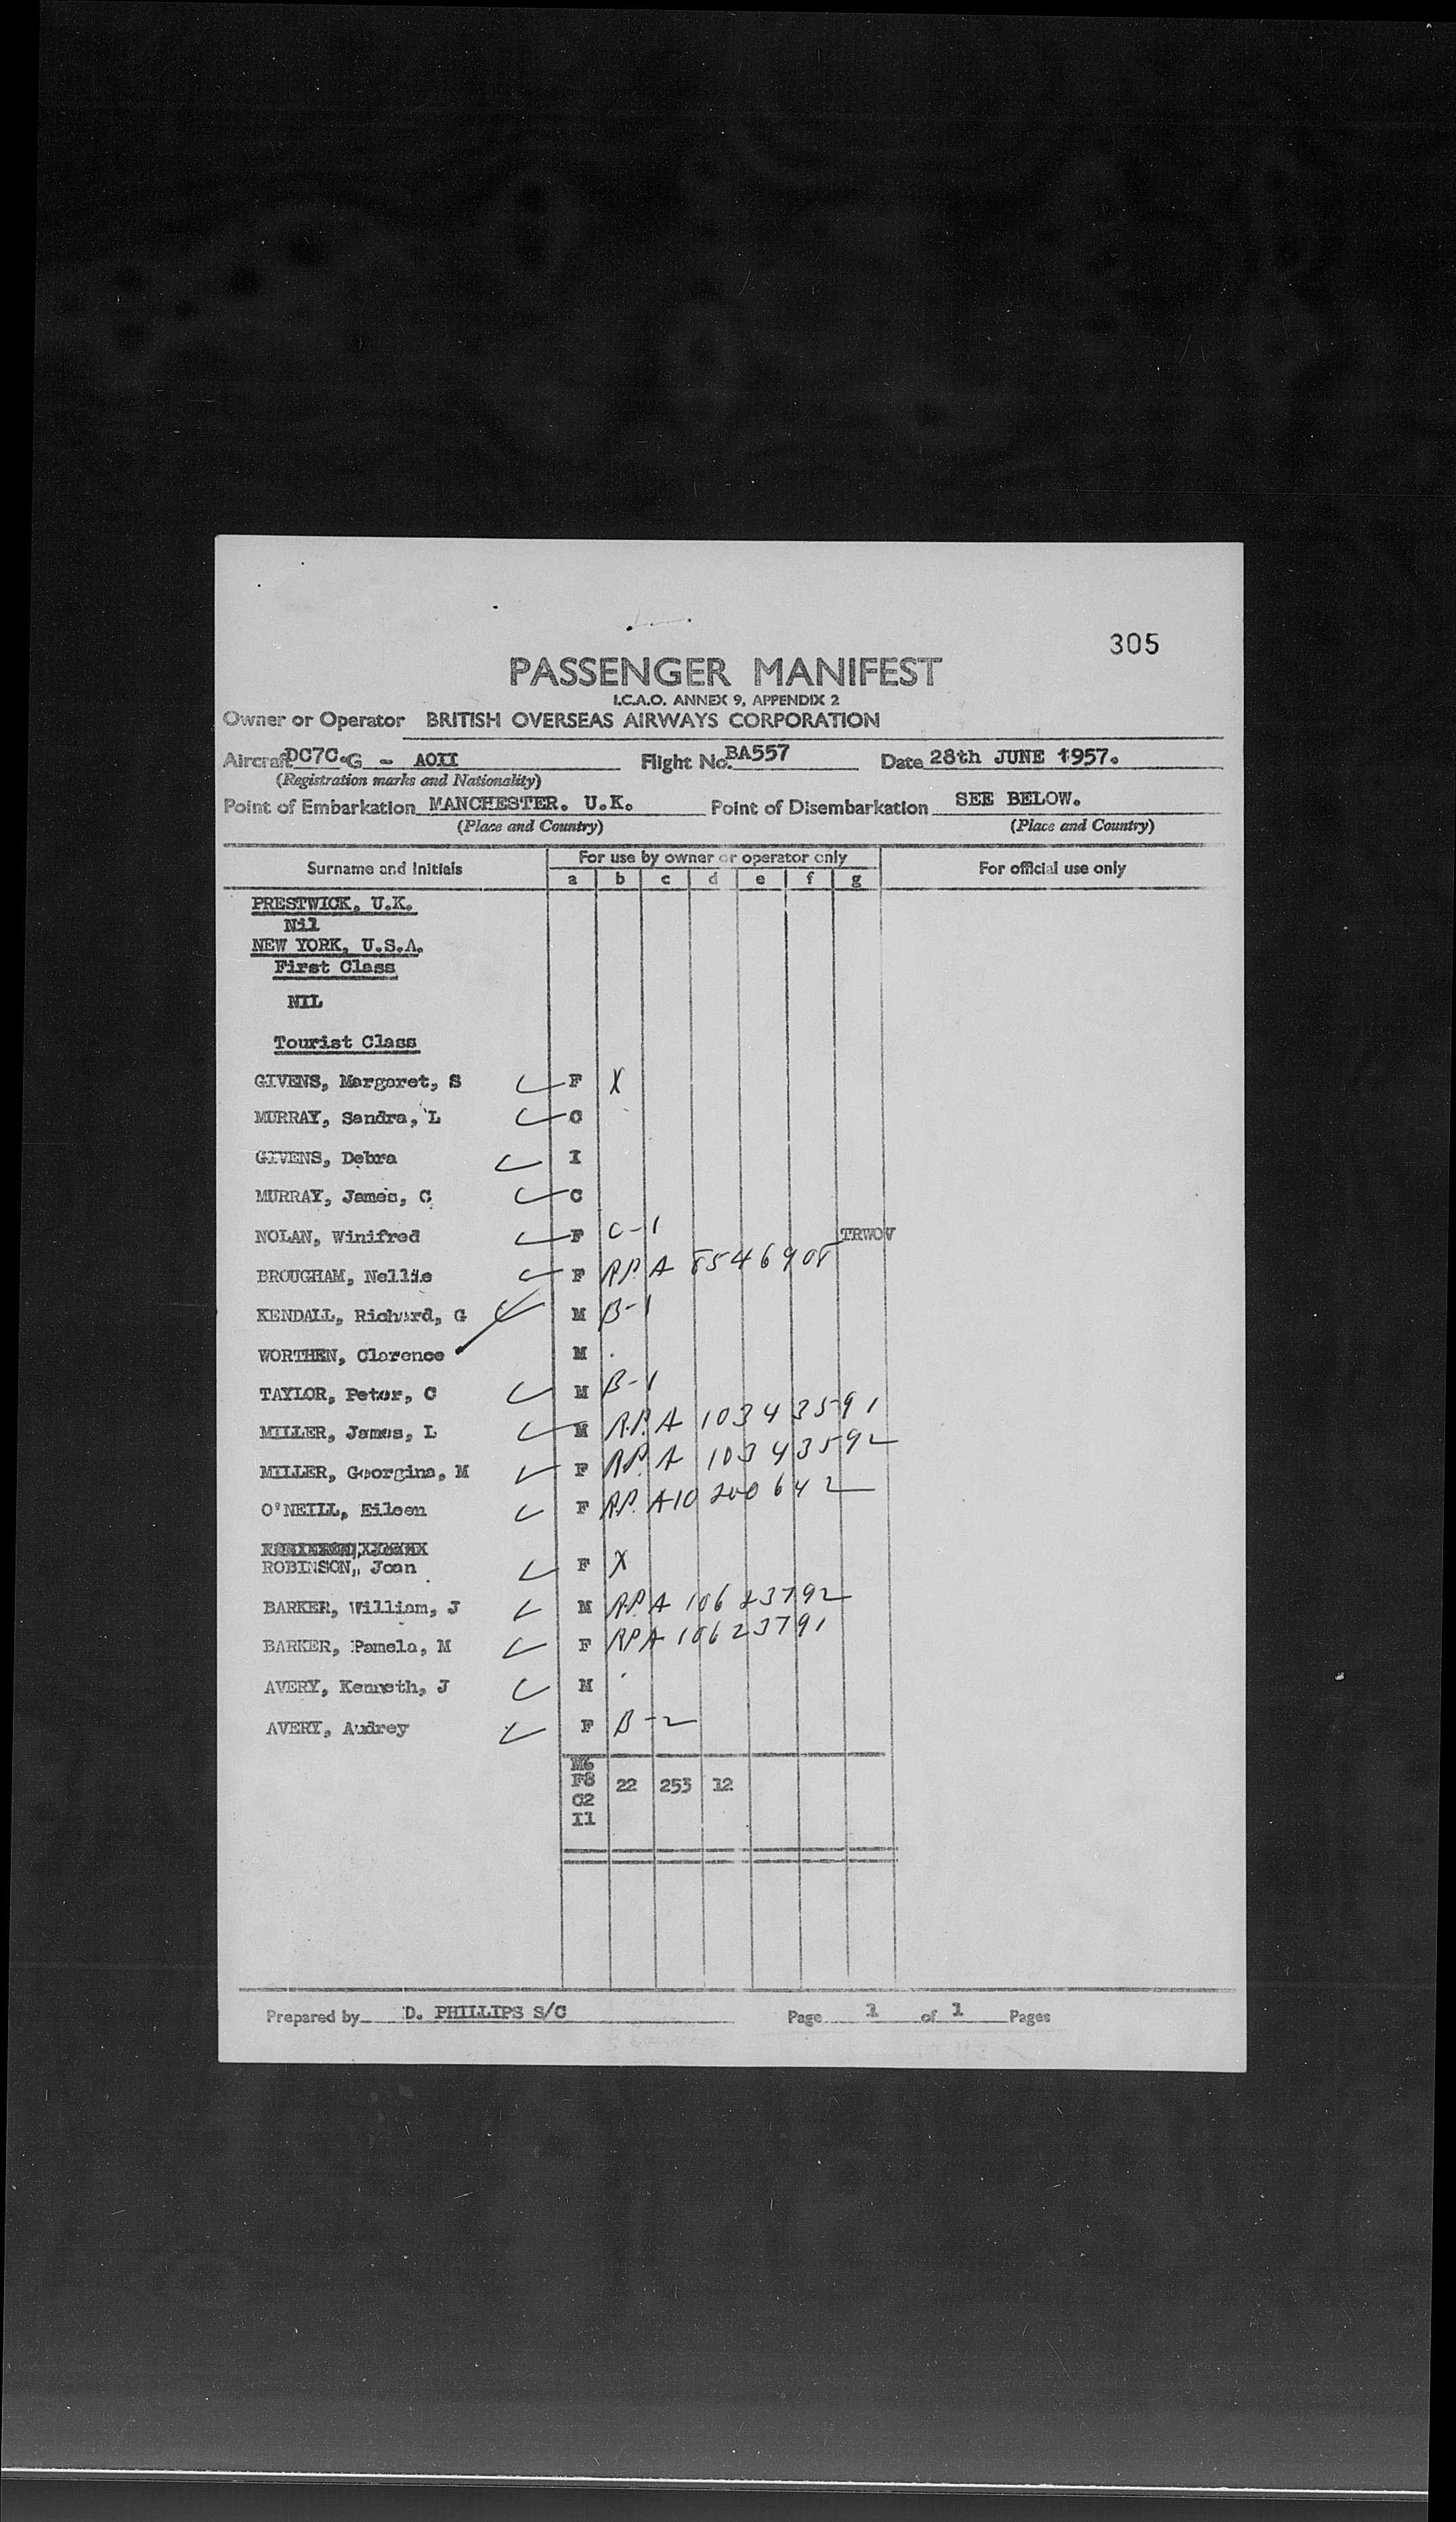 305
PASSENGER MANIFEST
I.C.A.O. ANNEX 9, APPENDIX 2
Owner or Operator BRITISH OVERSEAS AIRWAYS CORPORATION
Aircraft DC7C.G - AOII Flight No. BA557 Date 28th JUNE 1957.
(Registration marks and Nationality)
Point of Embarkation MANCHESTER. U.K. Point of Disembarkation SEE BELOW.
(Place and Country) (Place and Country)
Surname and Initials For use by owner or operator only For official use only
a b c d e f g
PRESTWICK, U.K.
Nil
NEW YORK, U.S.A.
First Class
NIL
Tourist Class
GIVENS, Margaret, S F X
MURRAY, Sandra, L C
GIVENS, Debra I
MURRAY, James, C C
NOLAN, Winifred F C-1 TRWOV
BROUGHAM, Nellie F R.P. A 8546908
KENDALL, Richard, G M B-1
WORTHEN, Clarence M
TAYLOR, Peter, C M B-1
MILLER, James, L M R.P. A 10343591
MILLER, Georgina, M F R.P. A 10343592
O'NEILL, Eileen F R.P. A10 200642
ROBINSON, Joan F X
BARKER, William, J M R.P. A 10623792
BARKER, Pamela, M F RPA 10623791
AVERY, Kenneth, J M
AVERY, Audrey F B-2
M6
F8 22 253 12
C2
I1
Prepared by D. PHILLIPS S/C Page 1 of 1 Pages